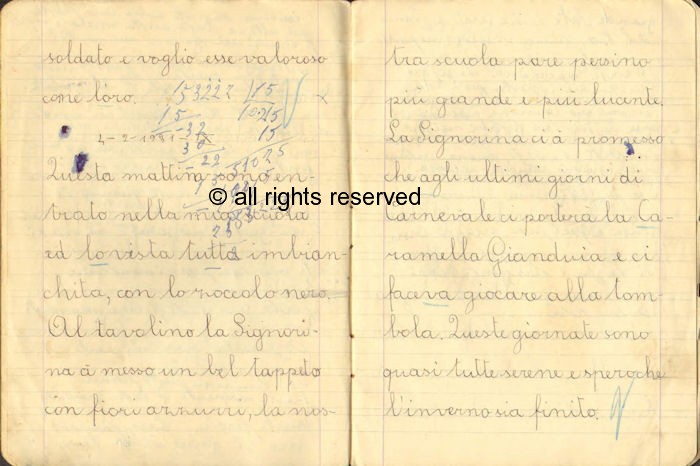 soldato e voglio esse valoroso
come loro.
153222 | 15
15
32
30
22
4-2-1931-IX
Questa mattina sono en-
trato nella mia scuola
ed lo vista tutta imbian-
chita, con lo zoccolo nero.
Al tavolino la Signori-
na à messo un bel tappeto
con fiori azzurri, la nos-
tra scuola pare persino
più grande e più lucente.
La Signorina ci à promesso
che agli ultimi giorni di
Carnevale ci porterà la Ca-
ramella Gianduia e ci
faceva giocare alla tom-
bola. Queste giornate sono
quasi tutte serene e speroche
l'inverno sia finito.
© all rights reserved